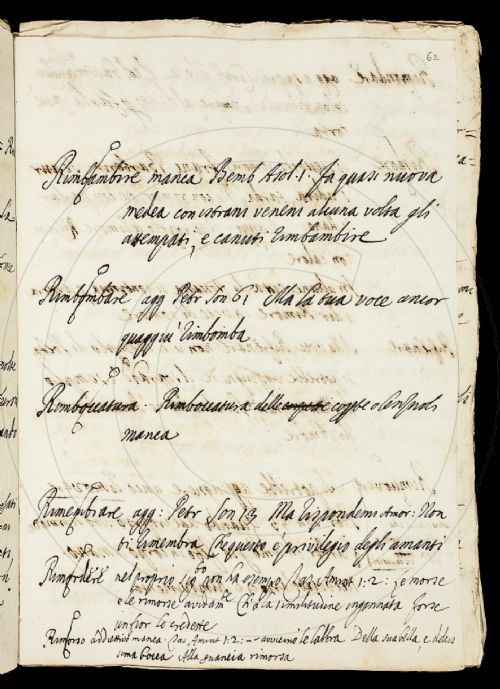 62
Rimbambire manca Bemb Asol. 1. fa quasi nuova
medea con istrani veneni alcuna volta gli
attempati, e canuti rimbambire
Rimbombare agg Petr Son 61 Ma la tua voce ancor
quaggiù rimbomba
Rimboccatura. Rimboccatura delle coperte coppe o lenzuola
manca
Rimembrare agg: Petr Son 13 Ma rispondemi Amor: Non
ti rimembra Che questo è privilegio degli amanti
Rimordere nel proprio non ha esempo Tas Amint 1:2: e morse
e le rimorse avidam.te Ch'alla similitudine ingannata forse
un fior le credette
Rimorso addiettivo manca. Tas Amint 1:2: -- avvicinò le labbra Della sua bella, e dolce
bocca Alla guancia rimorsa